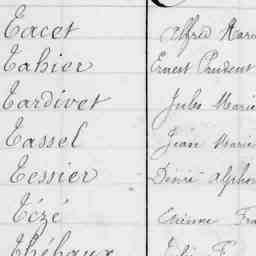 Tacet Alfred Marie
Tahier Ernest Prudent
Tardivet Jules Marie
Tassel Jean Marie
Tessier Désiré Alphon
Tézé Etienne Fra
Thébaux